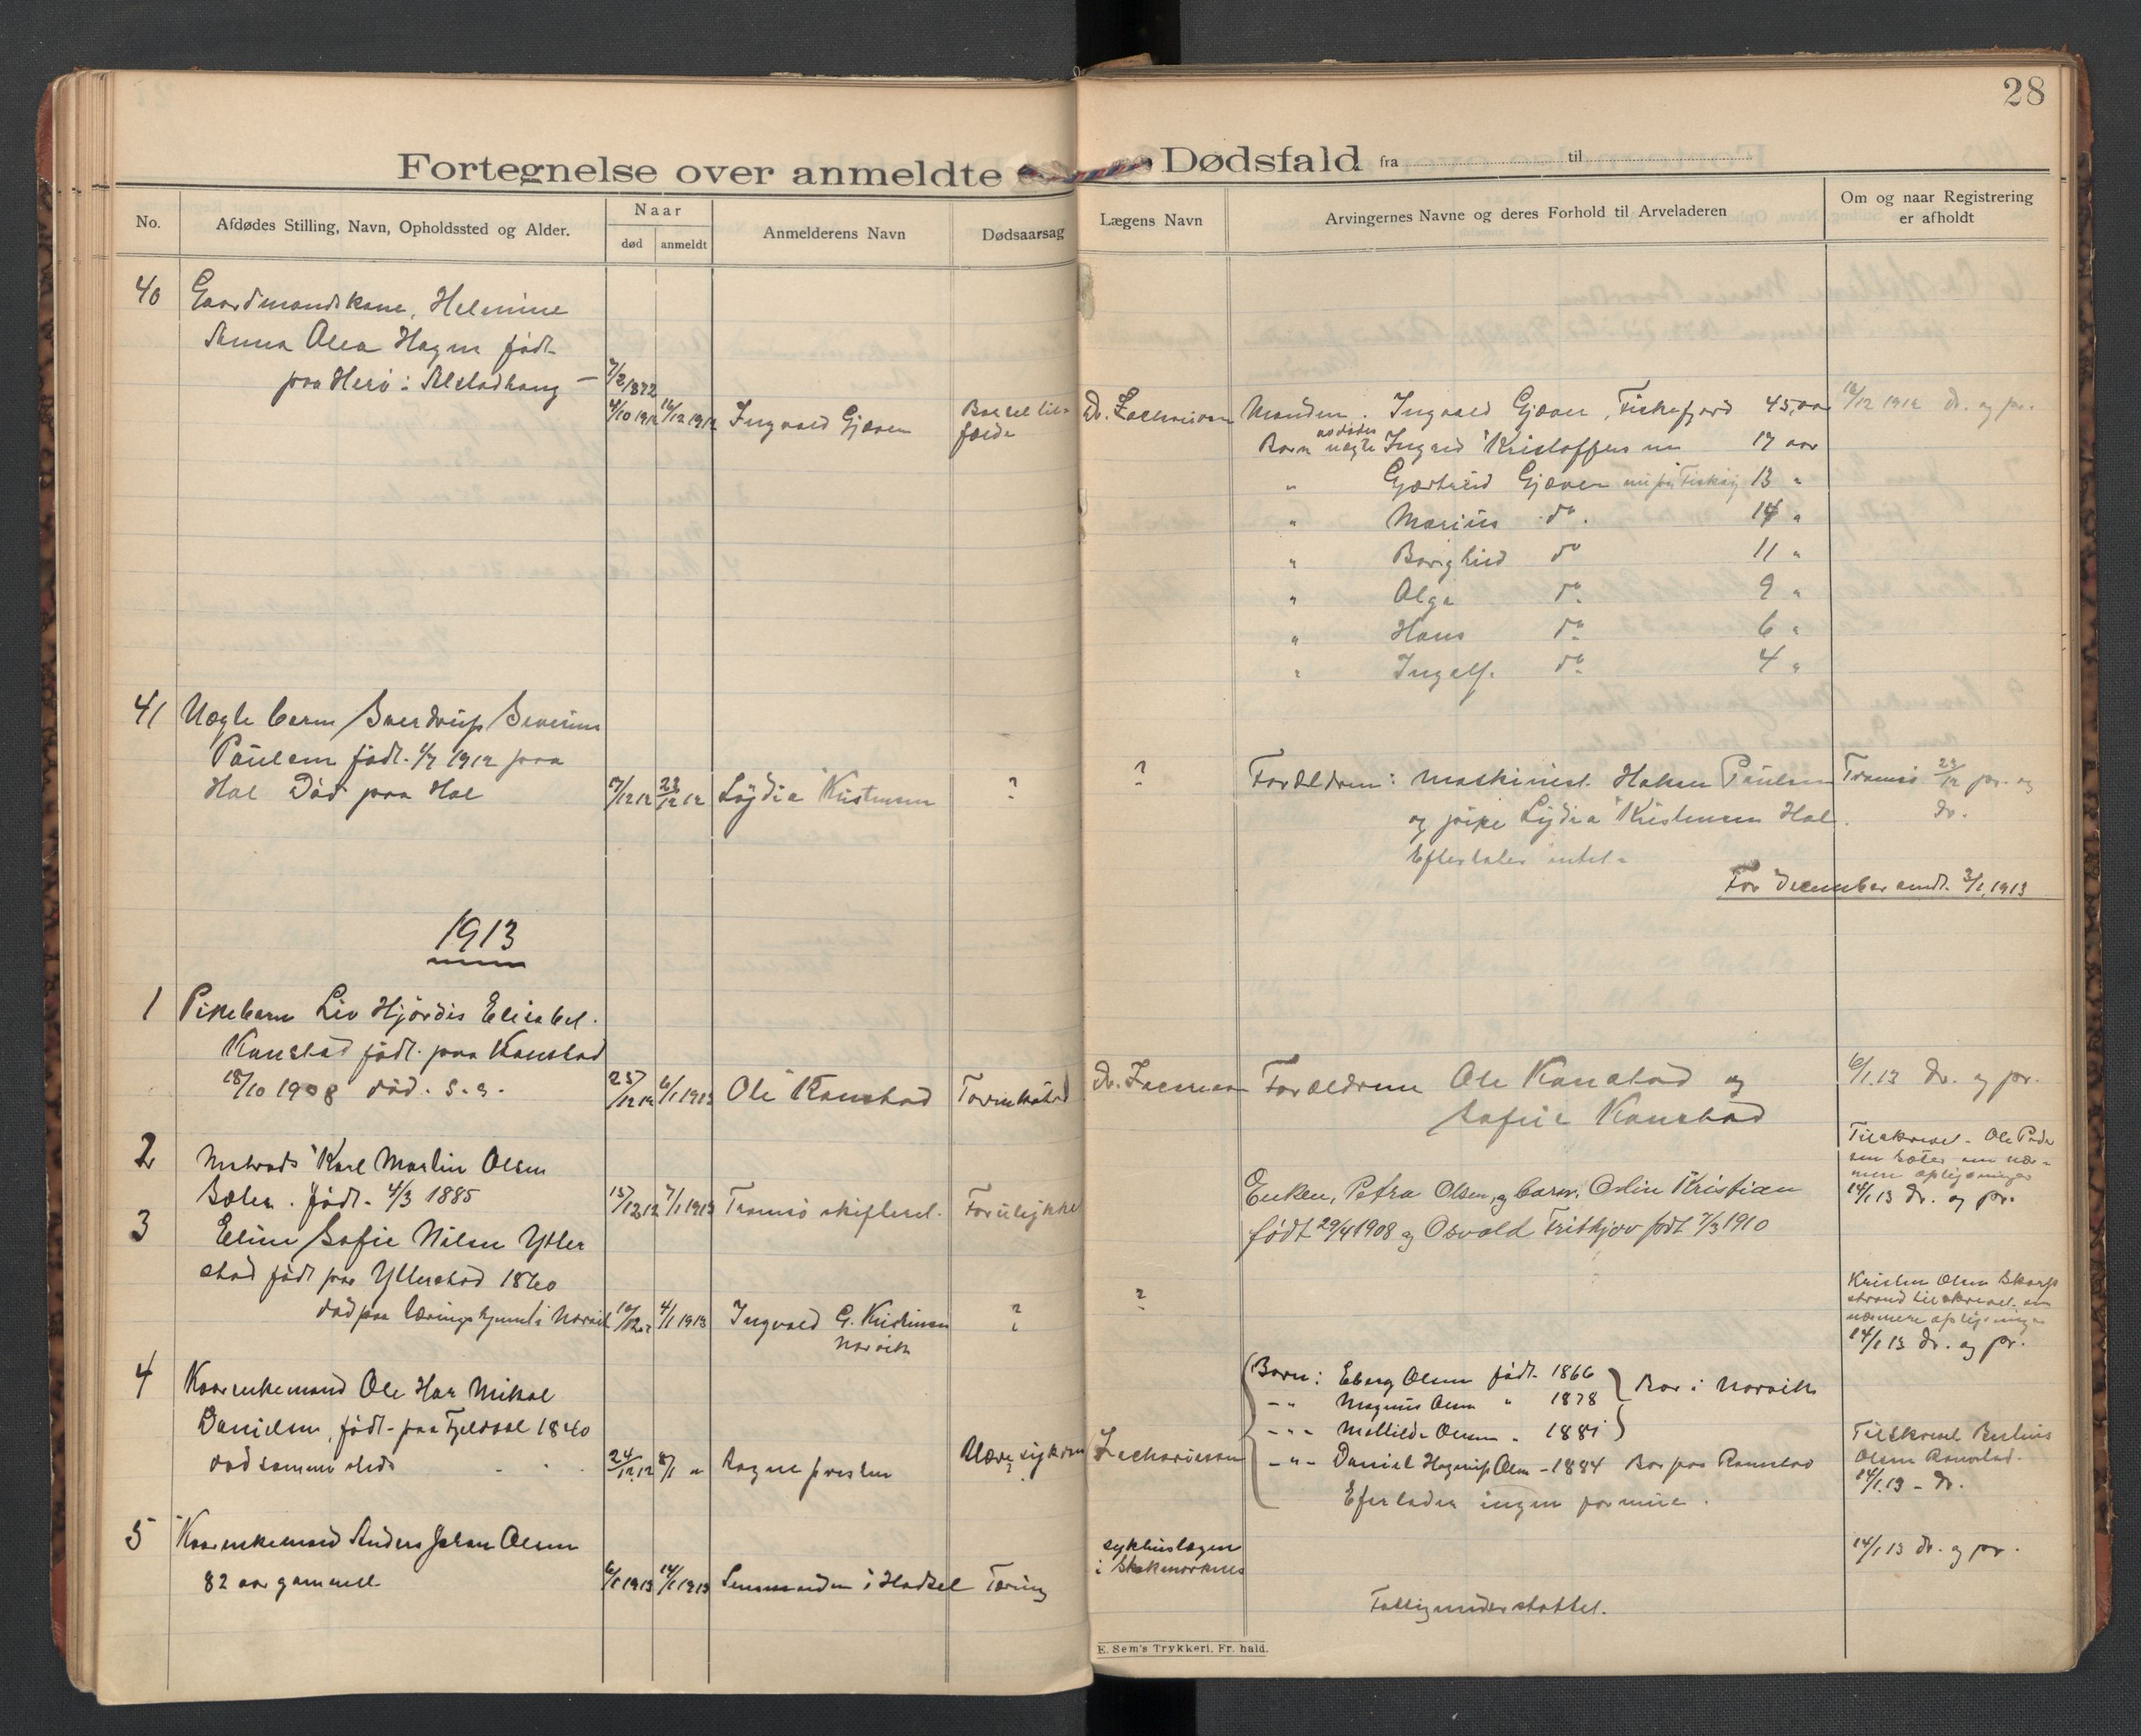 28
Fortegnelse over anmeldte Dødsfald fra til
No.
Afdødes Stilling, Navn, Opholdssted og Alder.
Naar
død
anmeldt
Anmelderens Navn
Dødsaarsag
Lægens Navn
Arvingernes Navne og deres Forhold til Arveladeren
Om og naar Registrering
er afholdt
40 Gaardmandskone, Helmine
Anna Olea Hagen født
paa Herø i Alstadhaug — 7/2 1872
4/10 1912 16/12 1912 Ingvald Gjæver
Dr. Manden. Ingvald Gjæver, Fiskefjord 45 aar 16/12 1912 dr. og pr.
Barn avdødes uægte Ingrid Kristoffersen 17 aar
" Gjertrud Gjæver 13 "
" Marius do. 14 "
" Borghild do 11 "
" Olga do. 9 "
" Hans do. 6 "
" Ingolf. do. 4 "
41 Uægte barn Sverdrup Severin
Paulsen født. 1912 paa
Hol Død paa Hol
17/12 12 23/12 12 Lydia Kristensen ?
?
Forældrene: maskinist. Hakon Paulsen Tromsø 23/12 pr. og
og pike Lydia Kristensen Hol. dr.
Efterlater intet.
For December sendt. 3/1 1913
1913
1 Pikebarn Liv Hjördis Elisabet.
Kanstad født. paa Kanstad
18/10 1908 død. s. s.
25/12 12 6/1 1913 Ole Kanstad
Dr. Forældrene Ole Kanstad og
Sofie Kanstad
6/1 13 dr. og pr.
2 Karl Martin Olsen
født. 4/3 1885
15/12 12 7/1 1913 Tromsø skifteret. Forulykket
Enken, Petra Olsen, og barn, Odin Kristian
født 29/4 1908 og Osvald Fritkjov født 7/3 1910
Tilskrevet. Ole
om nær-
mere oplysninger
14/1 13 dr. og pr.
3 Eline Sofie Nilsen Ytter
stad født paa Ytterstad 1860
død paa i Narvik
4/1 1913 Ingvald G. Kristensen
Narvik
?
?
Kristen Olsen Skarp
strand tilskrevet. om
nærmere oplysninger
14/1 13 dr. og pr.
4 Kaarenkemand Ole Mikal
Danielsen, født. paa 1840
død samme sted
24/12 12 8/1 " Sogne presten
Zachariassen
Barn: Eberg Olsen født. 1866
-"- Magnus Olsen " 1878
-"- Mathilde Olsen " 1881
Bor i Narvik
-"- Daniel Hagerup Olsen - 1884 Bor paa
Efterlader ingen formue.
Tilskrevet
Olsen
14/1 13 - dr.
5 Kaarenkemand Anders Johan Olsen
82 aar gammel
6/1 1913 14/1 1913 Lensmanden i Hadsel Tæring
sykhuslægen
i Stokmarknes
Fattigunderstøttet.
14/1 13 dr. og pr.
E. Sem's Trykkeri, Fr. hald.